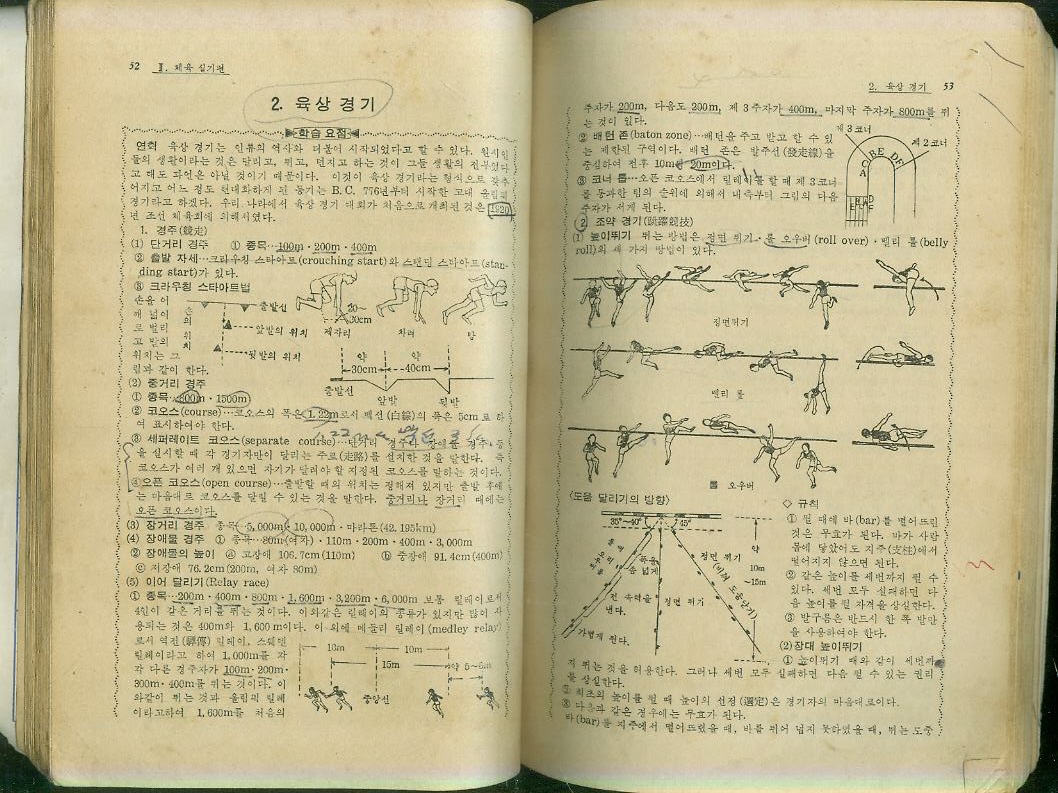 52 Ⅱ. 체육 실기편
2. 육상 경기
학습 요점
연혁 육상 경기는 인류의 역사와 더불어 시작되었다고 할 수 있다. 원시인
들의 생활이라는 것은 달리고, 뛰고, 던지고 하는 것이 그들 생활의 전부였다
고 해도 과언은 아닐 것이기 때문이다. 이것이 육상 경기라는 형식으로 갖추
어지고 어느 정도 현대화하게 된 동기는 B.C. 776년부터 시작한 고대 올림픽
경기라고 하겠다. 우리 나라에서 육상 경기 대회가 처음으로 개최된 것은 1920
년 조선 체육회에 의해서였다.
1. 경주(競走)
(1) 단거리 경주 ① 종목…100m·200m·400m
② 출발 자세…크라우칭 스타아트(crouching start)와 스탠딩 스타아트(stan-
ding start)가 있다.
③ 크라우칭 스타아트법
손을 어
깨 넓이
로 벌리
고 발의
위치는 그
림과 같이 한다.
손의 위치
출발선
앞발의 위치
뒷발의 위치
20~
30cm
제자리 차려 땅
약 30cm 약 40cm
출발선 앞발 뒷발
(2) 중거리 경주
① 종목…800m·1500m
② 코오스(course)…코오스의 폭은 1.22m로서 백선(白線)의 폭은 5cm로 하
여 표시하여야 한다.
③ 세퍼레이트 코오스(separate course)…단거리 경주나 장애물 경주 등
을 실시할 때 각 경기자만이 달리는 주로(走路)를 설치한 것을 말한다. 즉
코오스가 여러 개 있으면 자기가 달려야 할 지정된 코오스를 말하는 것이다.
④ 오픈 코오스(open course)…출발할 때의 위치는 정해져 있지만 출발 후에
는 마음대로 코오스를 달릴 수 있는 것을 말한다. 중거리나 장거리 때에는
오픈 코오스이다.
(3) 장거리 경주 종목…5,000m·10,000m·마라톤(42.195km)
(4) 장애물 경주 ① 종목…80m(여자)·110m·200m·400m·3,000m
② 장애물의 높이 ⓐ 고장애 106.7cm(110m) ⓑ 중장애 91.4cm(400m)
ⓒ 저장애 76.2cm(200m, 여자 80m)
(5) 이어 달리기(Relay race)
① 종목…200m·400m·800m·1,600m·3,200m·6,000m 보통 릴레이로서
4인이 같은 거리를 뛰는 것이다. 이와같은 릴레이의 종류가 있지만 많이 사
용되는 것은 400m와 1,600m이다. 이 외에 메들리 릴레이(medley relay)
로서 역전(驛傳) 릴레이, 스웨덴
릴레이라고 하여 1,000m를 각
각 다른 경주자가 100m·200m·
300m·400m를 뛰는 것이다. 이
와같이 뛰는 것과 올림픽 릴레
이라고하여 1,600m를 처음의
10m 10m
15m 약 5~6m
중앙선
2. 육상 경기 53
주자가 200m, 다음도 200m, 제 3주자가 400m, 마지막 주자가 800m를 뛰
는 것이 있다.
② 배턴 존(baton zone)…배턴을 주고 받고 할 수 있
는 제한된 구역이다. 배턴 존은 발주선(發走線)을
중심하여 전후 10m인 20m이다.
③ 코너 톱…오픈 코오스에서 릴레이를 할 때 제 3코너
를 통과한 팀의 순위에 의해서 내측부터 그림의 다음
주자가 서게 된다.
제3코너
제2코너
2. 조약 경기(跳躍競技)
(1) 높이뛰기 뛰는 방법은 정면 뛰기·롤 오우버(roll over)·벨리 롤(belly
roll)의 세 가지 방법이 있다.
정면뛰기
벨리 롤
롤 오우버
〈도움 달리기의 방향〉
35°~40° 45°
약
10m
~15m
정면 뛰기
정면 뛰기(비껴 도움닫기)
전 속력을
낸다.
가볍게 뛴다.
◇ 규칙
① 뛸 때에 바(bar)를 떨어뜨린
것은 무효가 된다. 바가 사람
몸에 닿았어도 지주(支柱)에서
떨어지지 않으면 된다.
② 같은 높이를 세번까지 뛸 수
있다. 세번 모두 실패하면 다
음 높이를 뛸 자격을 상실한다.
③ 발구름은 반드시 한 쪽 발만
을 사용하여야 한다.
(2) 장대 높이뛰기
① 높이뛰기 때와 같이 세번까
지 뛰는 것을 허용한다. 그러나 세번 모두 실패하면 다음 뛸 수 있는 권리
를 상실한다.
② 최초의 높이를 뛸 때 높이의 선정(選定)은 경기자의 마음대로이다.
③ 다음과 같은 경우에는 무효가 된다.
바(bar)를 지주에서 떨어뜨렸을 때, 바를 뛰어 넘지 못하였을 때, 뛰는 도중